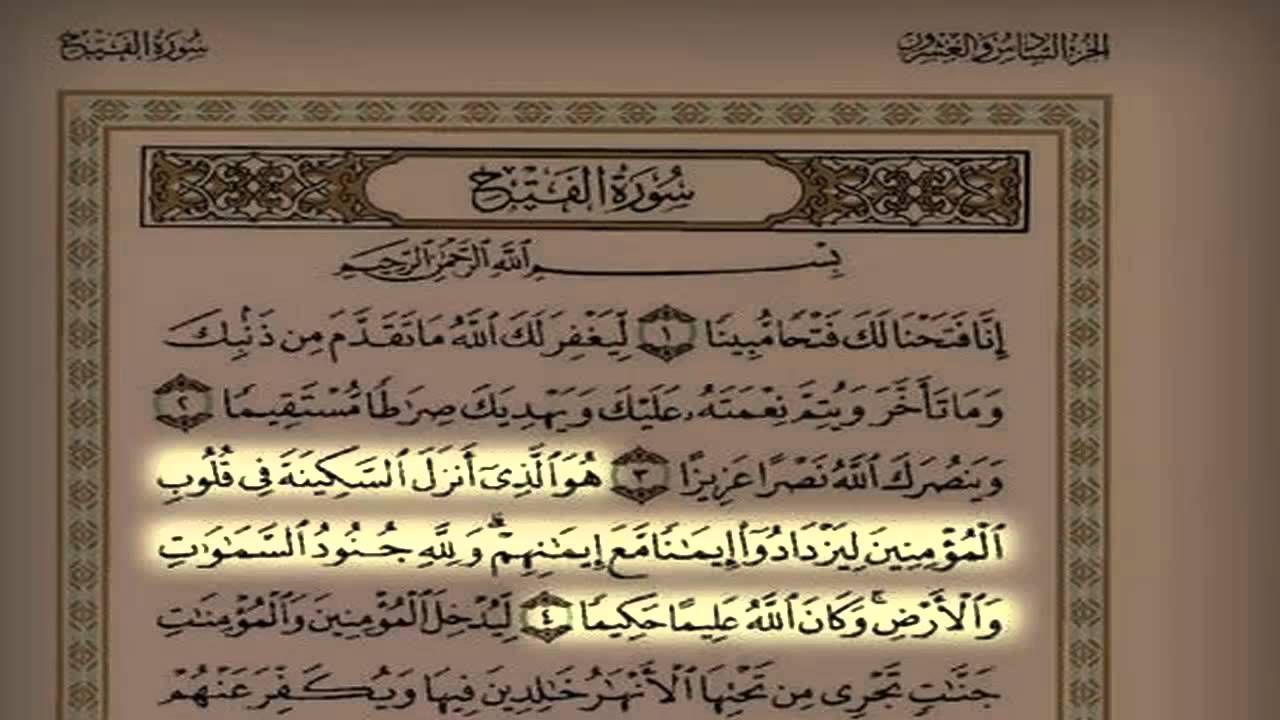 الجزء السادس والعشرون
سورة الفتح
سُورَةُ الفَتْحِ
بِسْمِ ٱللَّهِ ٱلرَّحْمَٰنِ ٱلرَّحِيمِ
إِنَّا فَتَحْنَا لَكَ فَتْحًا مُّبِينًا ١ لِّيَغْفِرَ لَكَ ٱللَّهُ مَا تَقَدَّمَ مِن ذَنۢبِكَ
وَمَا تَأَخَّرَ وَيُتِمَّ نِعْمَتَهُۥ عَلَيْكَ وَيَهْدِيَكَ صِرَٰطًا مُّسْتَقِيمًا ٢
وَيَنصُرَكَ ٱللَّهُ نَصْرًا عَزِيزًا ٣ هُوَ ٱلَّذِىٓ أَنزَلَ ٱلسَّكِينَةَ فِى قُلُوبِ
ٱلْمُؤْمِنِينَ لِيَزْدَادُوٓا۟ إِيمَٰنًا مَّعَ إِيمَٰنِهِمْ ۗ وَلِلَّهِ جُنُودُ ٱلسَّمَٰوَٰتِ
وَٱلْأَرْضِ ۚ وَكَانَ ٱللَّهُ عَلِيمًا حَكِيمًا ٤ لِّيُدْخِلَ ٱلْمُؤْمِنِينَ وَٱلْمُؤْمِنَٰتِ
جَنَّٰتٍ تَجْرِى مِن تَحْتِهَا ٱلْأَنْهَٰرُ خَٰلِدِينَ فِيهَا وَيُكَفِّرَ عَنْهُمْ